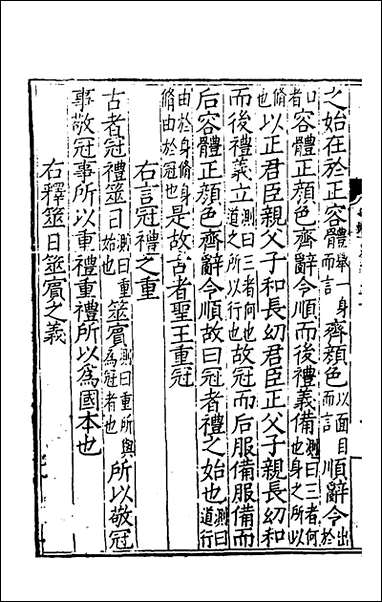 之始在於正容體舉一身而言齊顏色以面目而言順辭令出於
口者容體正顏色齊辭令順而後禮義備測曰三者何也身之所以
脩也以正君臣親父子和長幼君臣正父子親長幼和
而後禮義立測曰三者何也道之所以行也故冠而后服備服備而
后容體正顏色齊辭令順故曰冠者禮之始也測曰道行
由於身脩身脩由於冠也是故古者聖王重冠
右言冠禮之重
古者冠禮筮日測曰重始也筮賓測曰重所與為冠者也所以敬冠
事敬冠事所以重禮重禮所以為國本也
右釋筮日筮賓之義